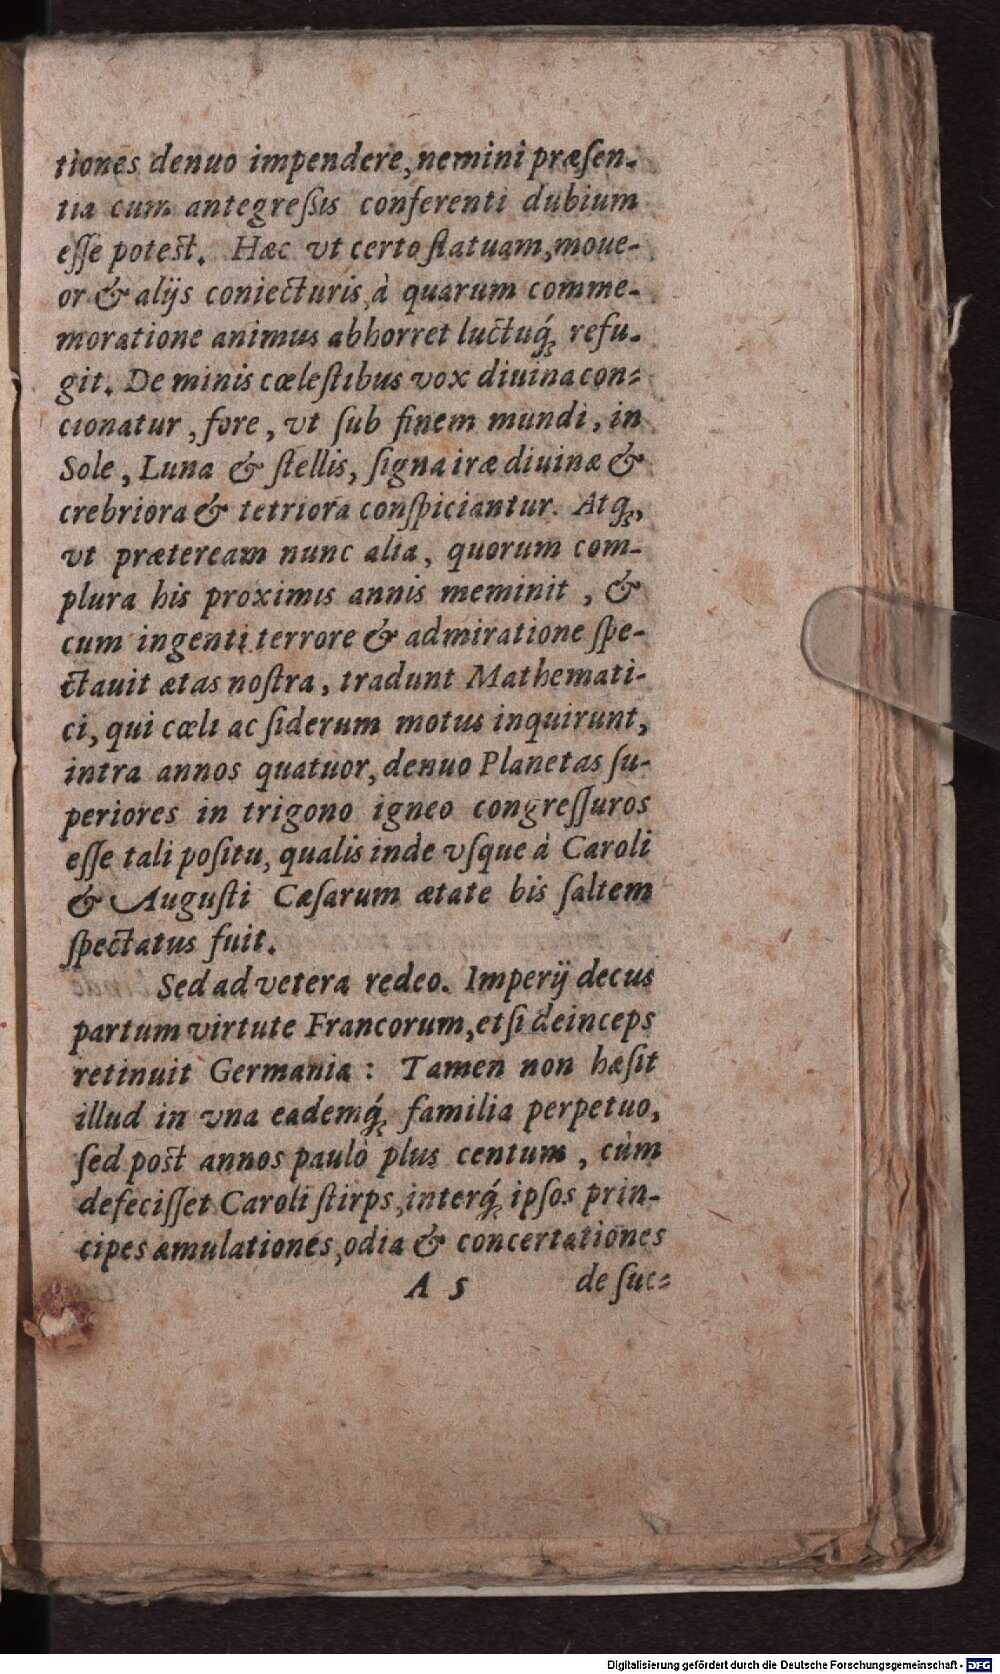 tiones denuo impendere, nemini præſen-
tia cum antegreſsis conferenti dubium
eſſe poteſt. Hæc vt certo ſtatuam, moue-
or & alijs coniecturis à quarum comme-
moratione animus abhorret luctuq́; refu-
git. De minis cœleſtibus vox diuina con-
cionatur, fore, vt ſub finem mundi, in
Sole, Luna & ſtellis, ſigna iræ diuinæ &
crebriora & tetriora conſpiciantur. Atq;,
vt præteream nunc alia, quorum com-
plura his proximis annis meminit, &
cum ingenti terrore & admiratione ſpe-
ctauit ætas noſtra, tradunt Mathemati-
ci, qui cœli ac ſiderum motus inquirunt,
intra annos quatuor, denuo Planetas ſu-
periores in trigono igneo congreſſuros
eſſe tali poſitu, qualis inde vſque à Caroli
& Auguſti Cæſarum ætate bis ſaltem
ſpectatus fuit.
Sed ad vetera redeo. Imperij decus
partum virtute Francorum, etſi deinceps
retinuit Germania: Tamen non hæſit
illud in vna eademq́; familia perpetuo,
ſed poſt annos paulò plus centum, cùm
defeciſſet Caroli ſtirps, interq́; ipſos prin-
cipes æmulationes, odia & concertationes
A 5 de ſuc-
Digitalisierung gefördert durch die Deutsche Forschungsgemeinschaft - DFG